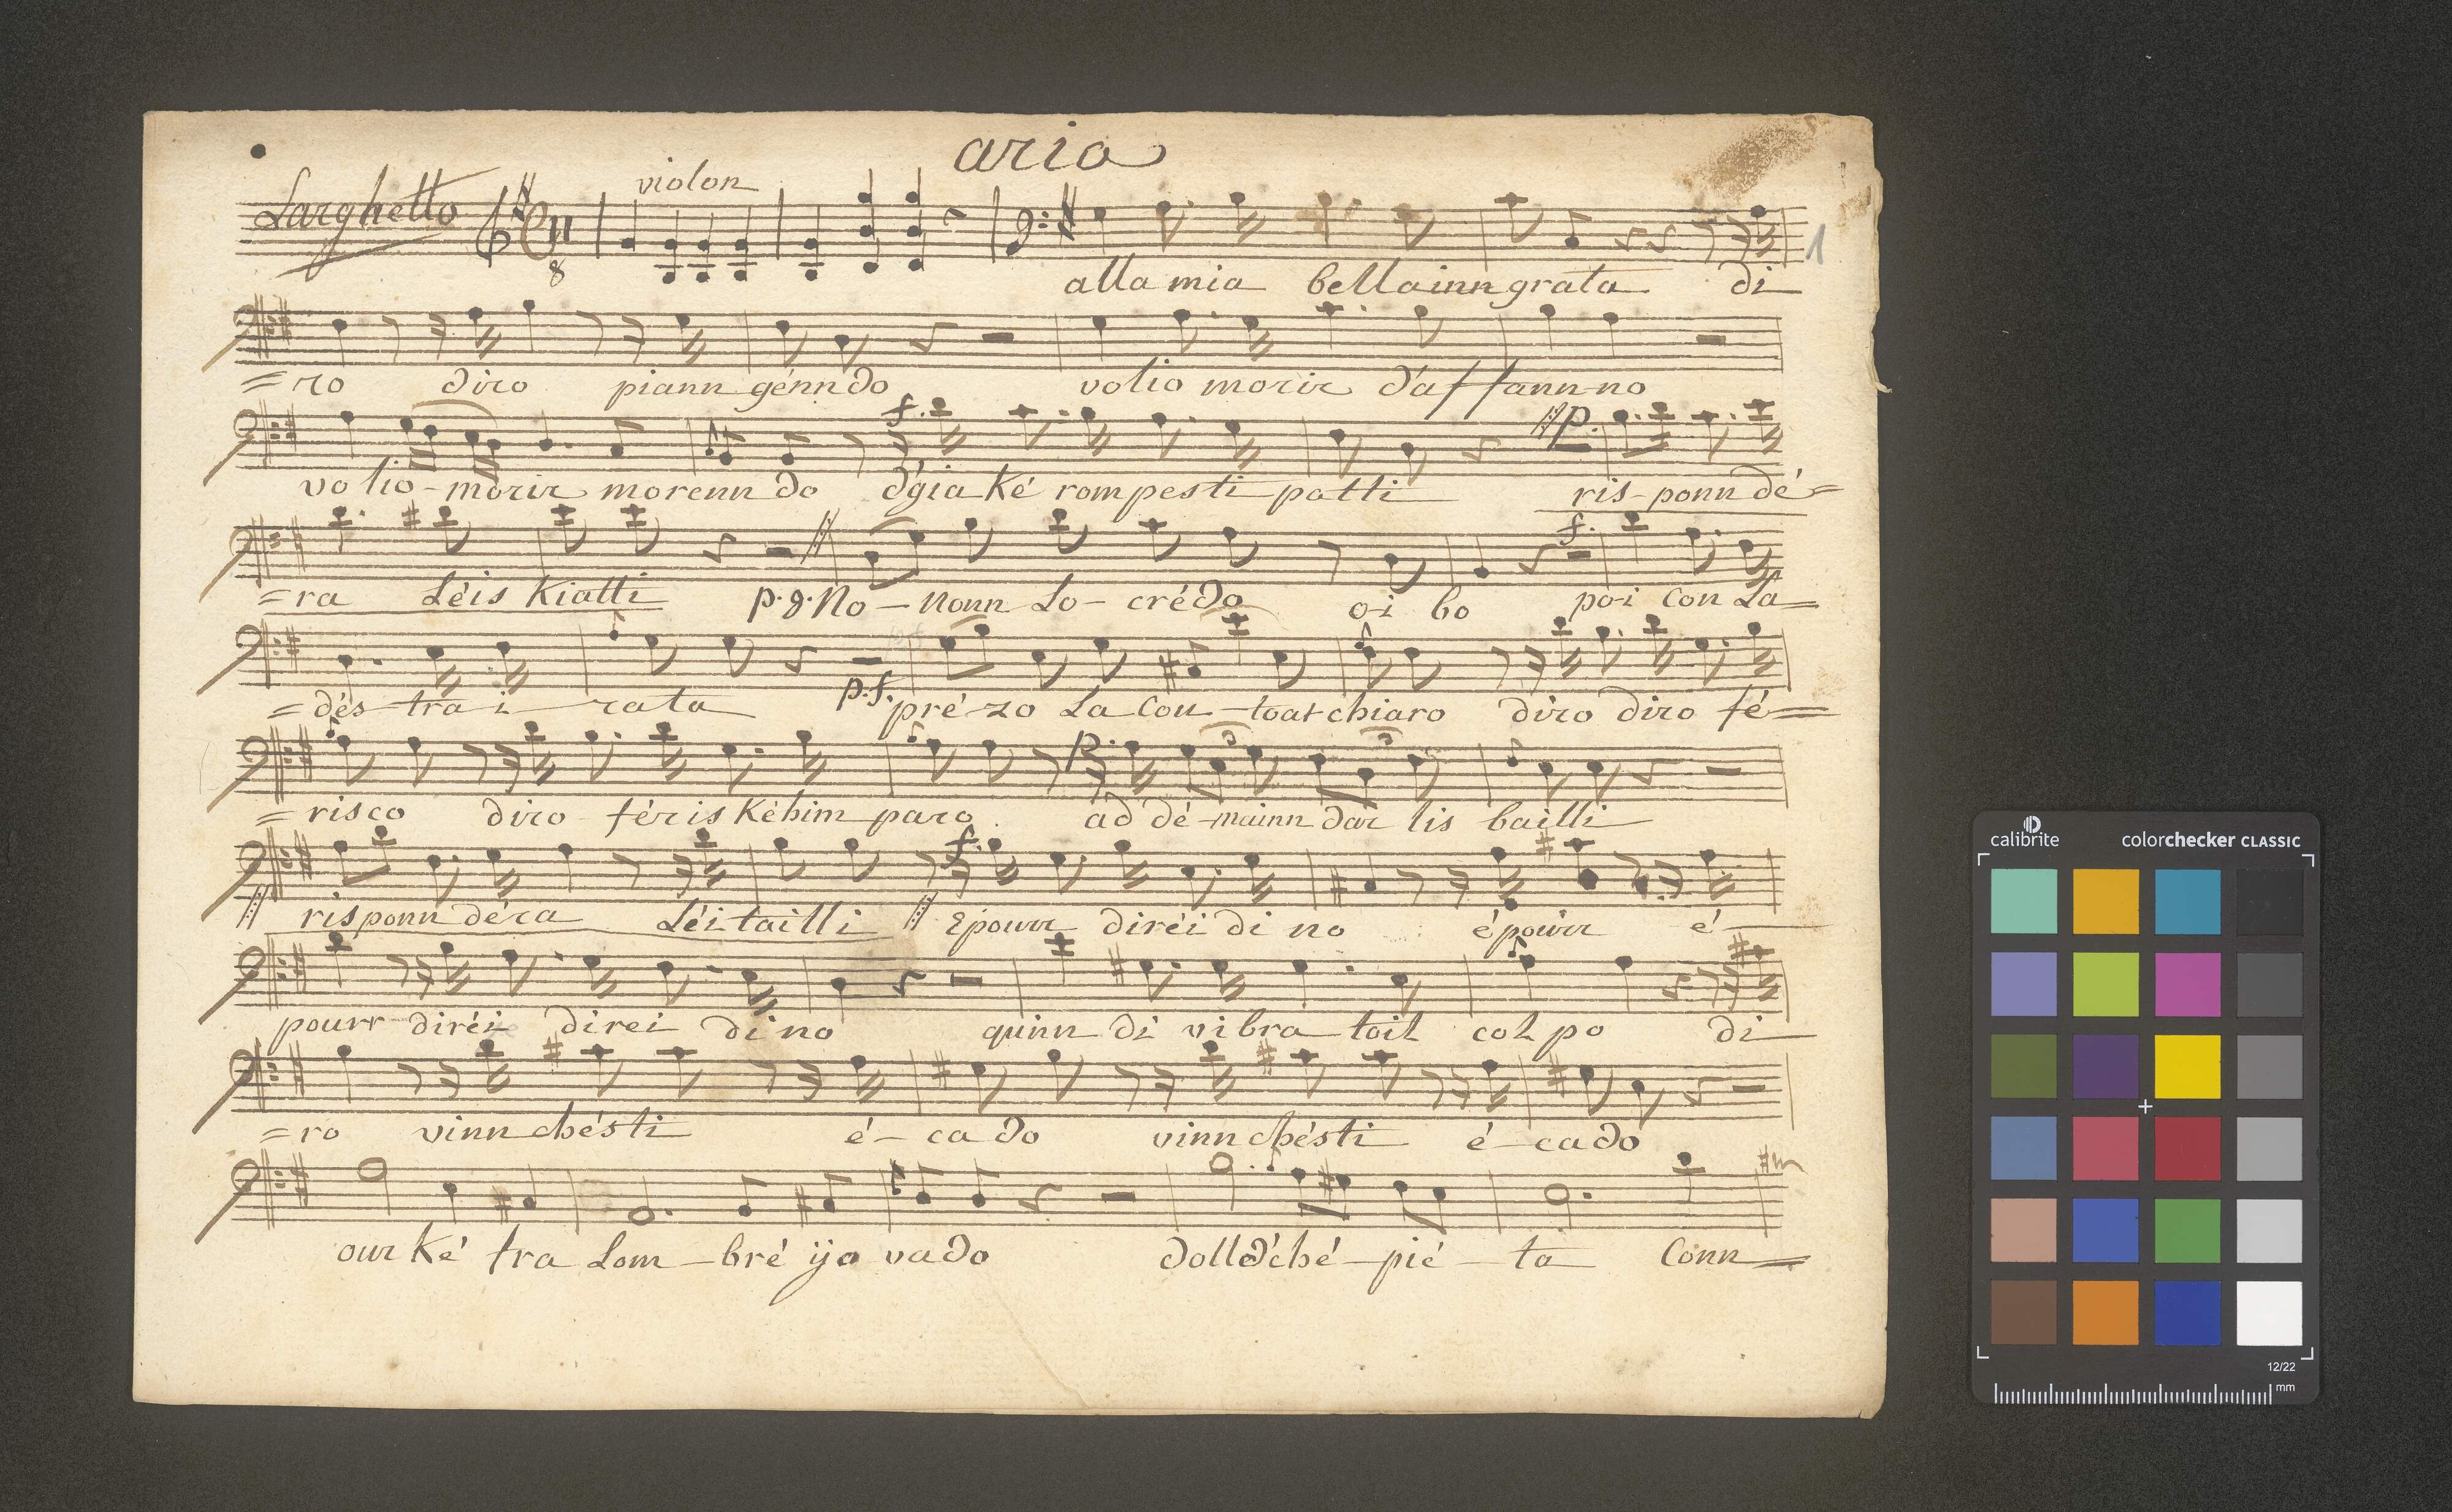 aria
Larghetto violon
8
1
alla mia bella inn grata di
=ro diro piann génn do volio morir d'affann-no
f. pp.
volio-morir morenn do d'gia ké rompesti patti ris-ponn dé=
f.
=ra Léis Kiatti p.g. No-nonn Lo-crédo o-i bo po-i con La=
=dés-tra i-rata p.f. pré-zo La Con-toat chiaro diro diro fé=
p. 3 3
=risco diro-féris Kéhim paro ad dé-mainn dar lis bailli
f.
risponn déra Léi tailli Epourr diréi di no épourr é-
pourr diréi direi di no quinn di vibra toil col po di
=ro vinn chésti é-ca do vinn chésti é-cado
our Ké tra Lom-bré ijo vado dolld'ché-pié-ta Conn=
calibrite colorchecker CLASSIC
12/22
mm